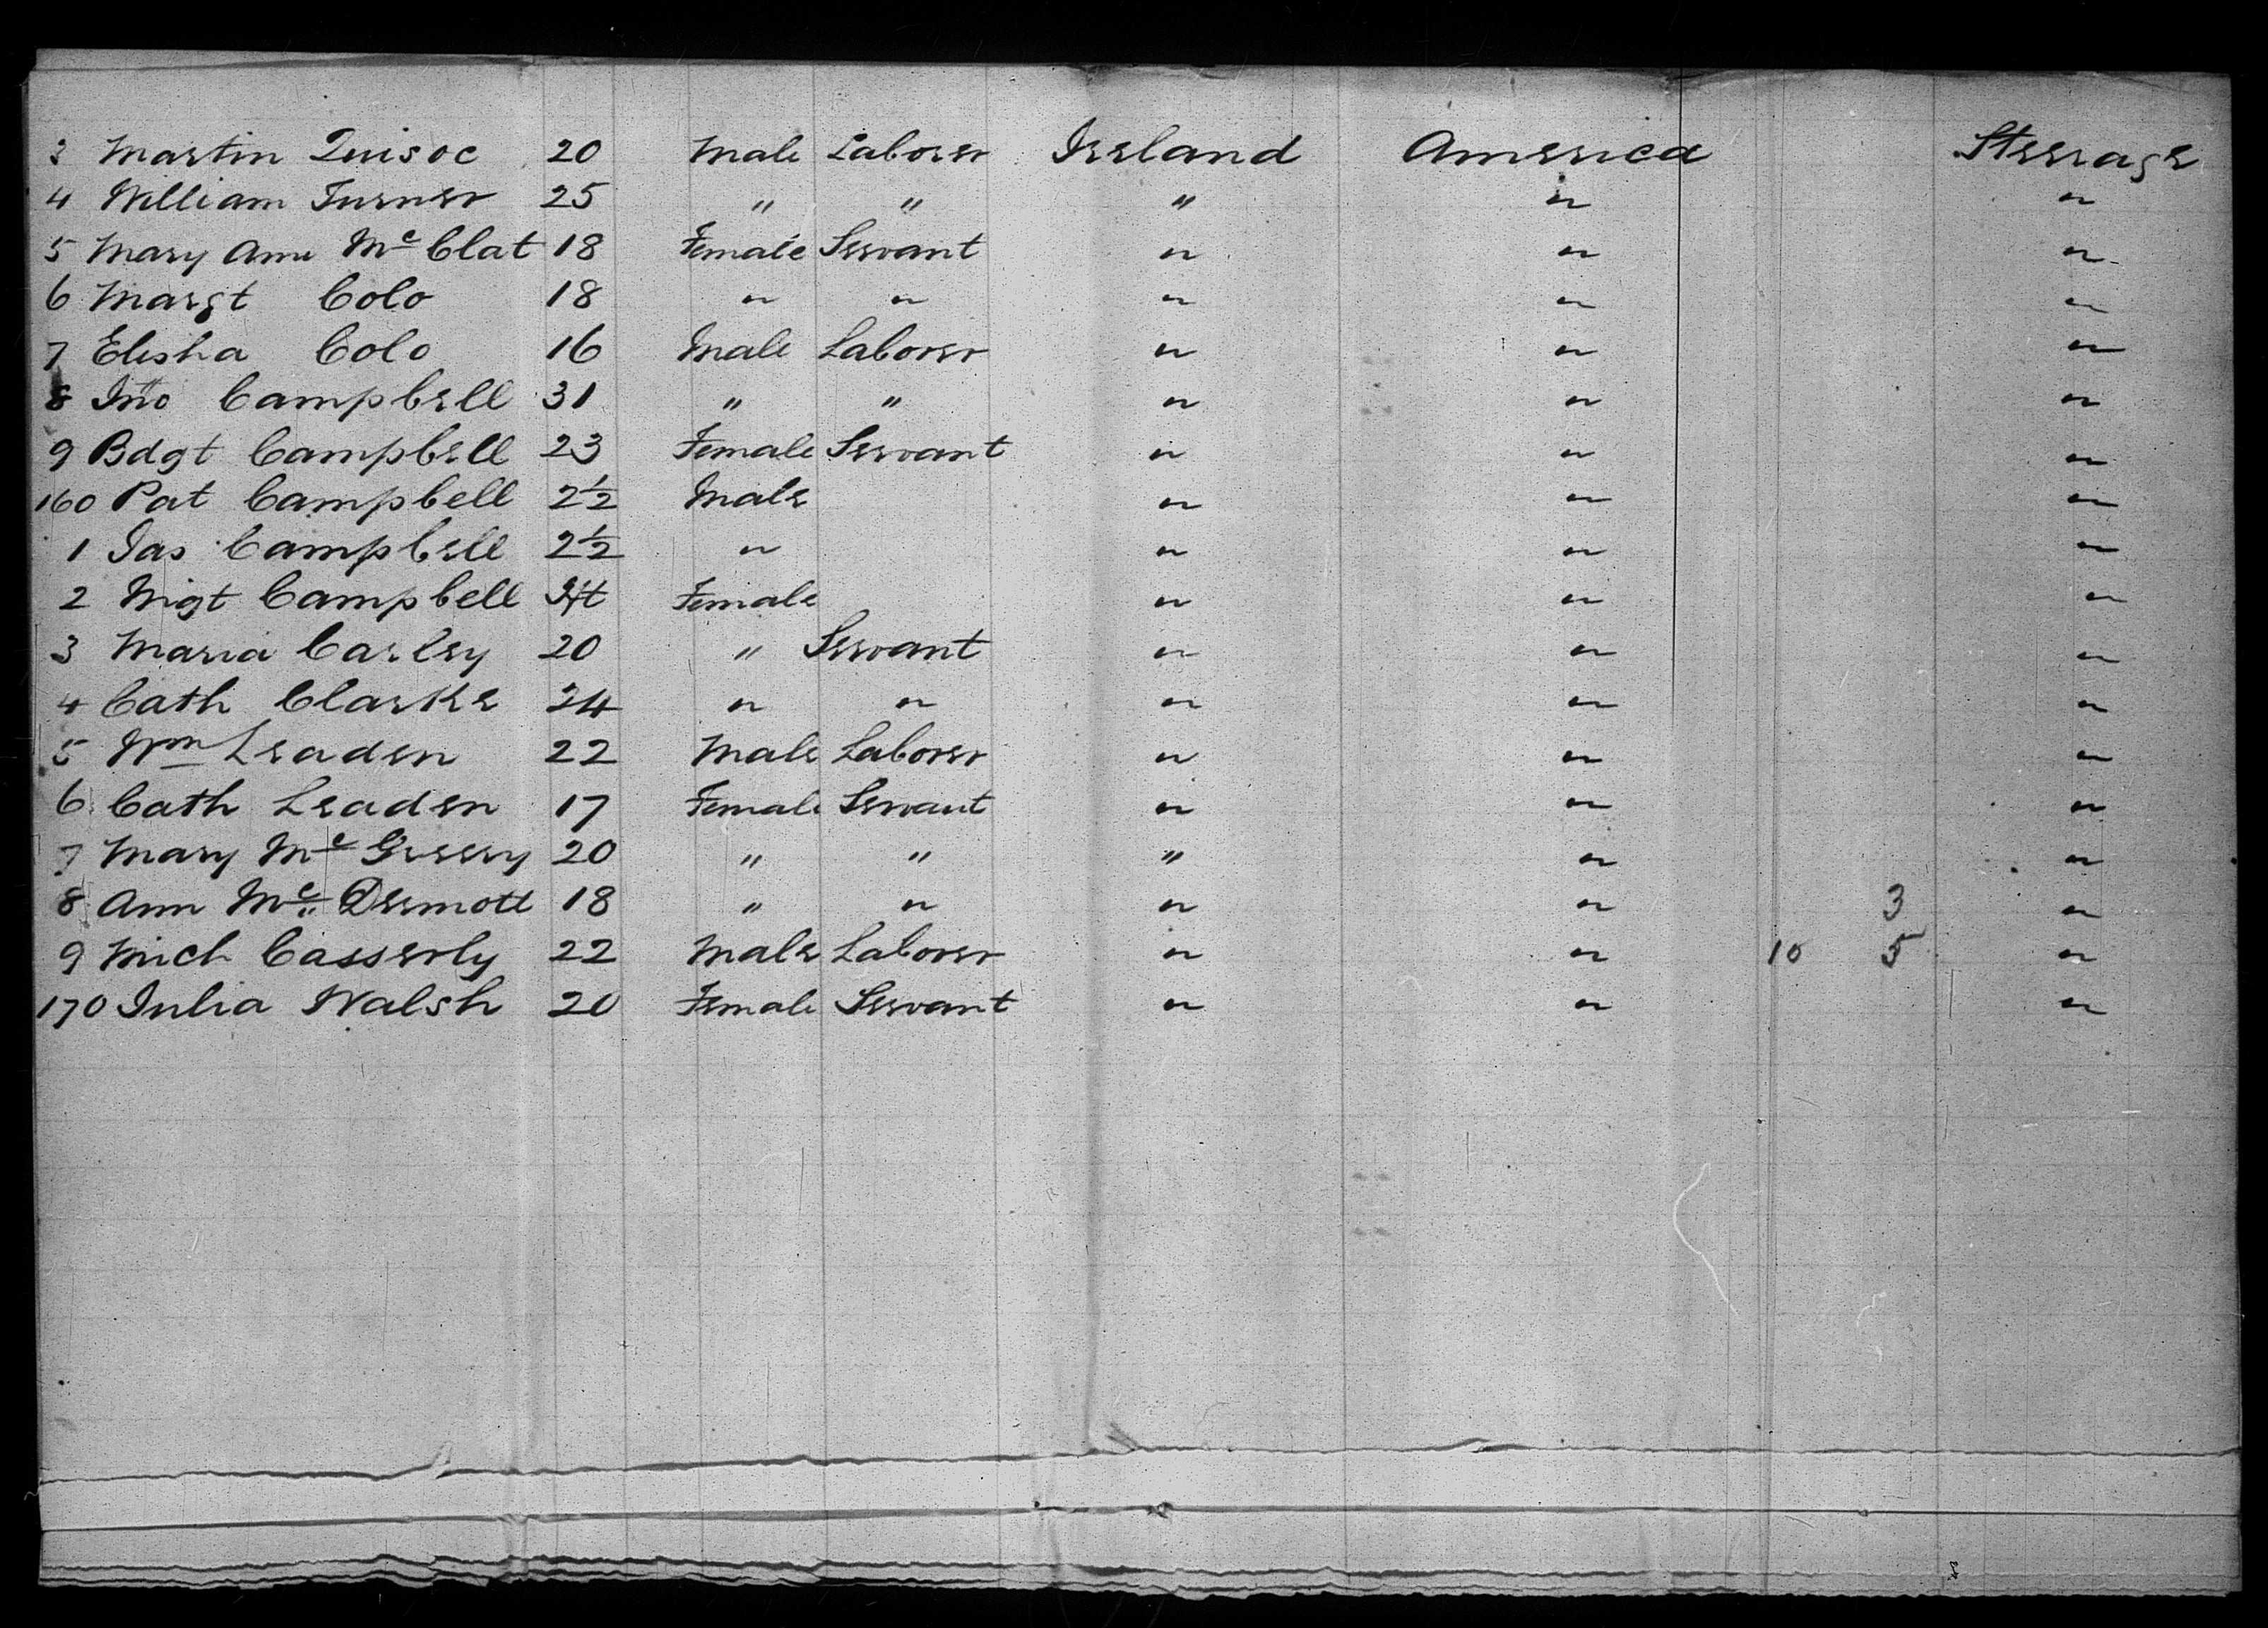 3 Martin Quisoc 20 Male Laborer Ireland America Steerage
4 William Turner 25 " " " " "
5 Mary Ann Mc Clat 18 Female Servant " " "
6 Margt Colo 18 " " " " "
7 Elisha Colo 16 Male Laborer " " "
8 Jno Campbell 31 " " " " "
9 Bdgt Campbell 23 Female Servant " " "
160 Pat Campbell 2½ Male " " "
1 Jas Campbell 2½ " " " "
2 Mgt Campbell Female " " "
3 Maria Carley 20 " Servant " " "
4 Cath Clarke 24 " " " " "
5 Wm Leaden 22 Male Laborer " " "
6 Cath Leaden 17 Female Servant " " "
7 Mary Mc Greery 20 " " " " "
8 Ann Mc Dermott 18 " " " " 3 "
9 Mich Casserly 22 Male Laborer " " 10 5 "
170 Julia Walsh 20 Female Servant " " "